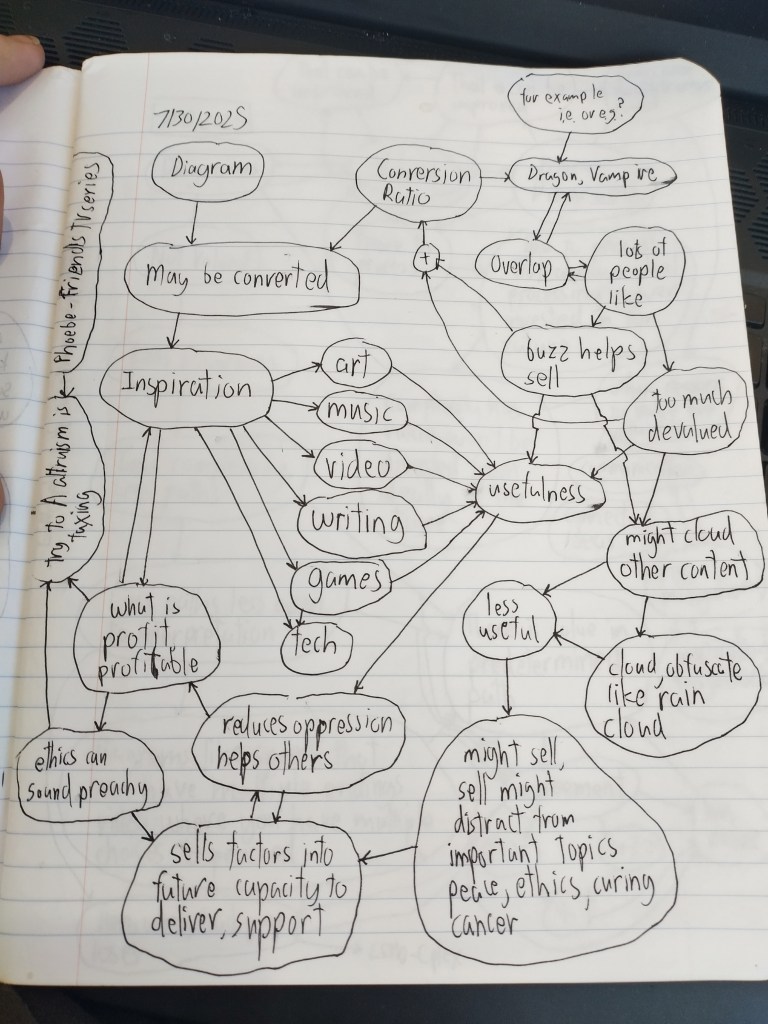 for example
i.e. or e.g.?
7/30/2025
Diagram
Conversion
Ratio
Dragon, Vampire
May be converted
+
Overlap
lots of
people
like
Phoebe - Friends TV series
buzz helps
sell
Inspiration
art
music
video
writing
games
tech
too much
devalued
usefulness
try to A altruism is
taxing
might cloud
other content
what is
profit,
profitable
less
useful
cloud, obfuscate
like rain
cloud
reduces oppression
helps others
ethics can
sound preachy
might sell,
sell might
distract from
important topics
peace, ethics, curing
cancer
sells factors into
future capacity to
deliver, support